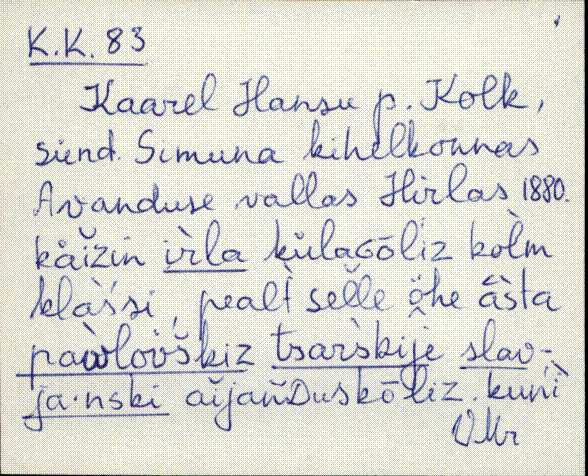 K.K. 83
Kaarel Hansu p. Kolk,
sünd. Simuna kihelkonnas
Avanduse vallas Hirlas 1880.
kåi̮žin ìrla kùlaGōliz kòlm
klàśśi, pealt̀ selle ö̀he āsta
pawlovškiz tsaŕskije slav-
ja·nski aìjanDuskōliz. kuni